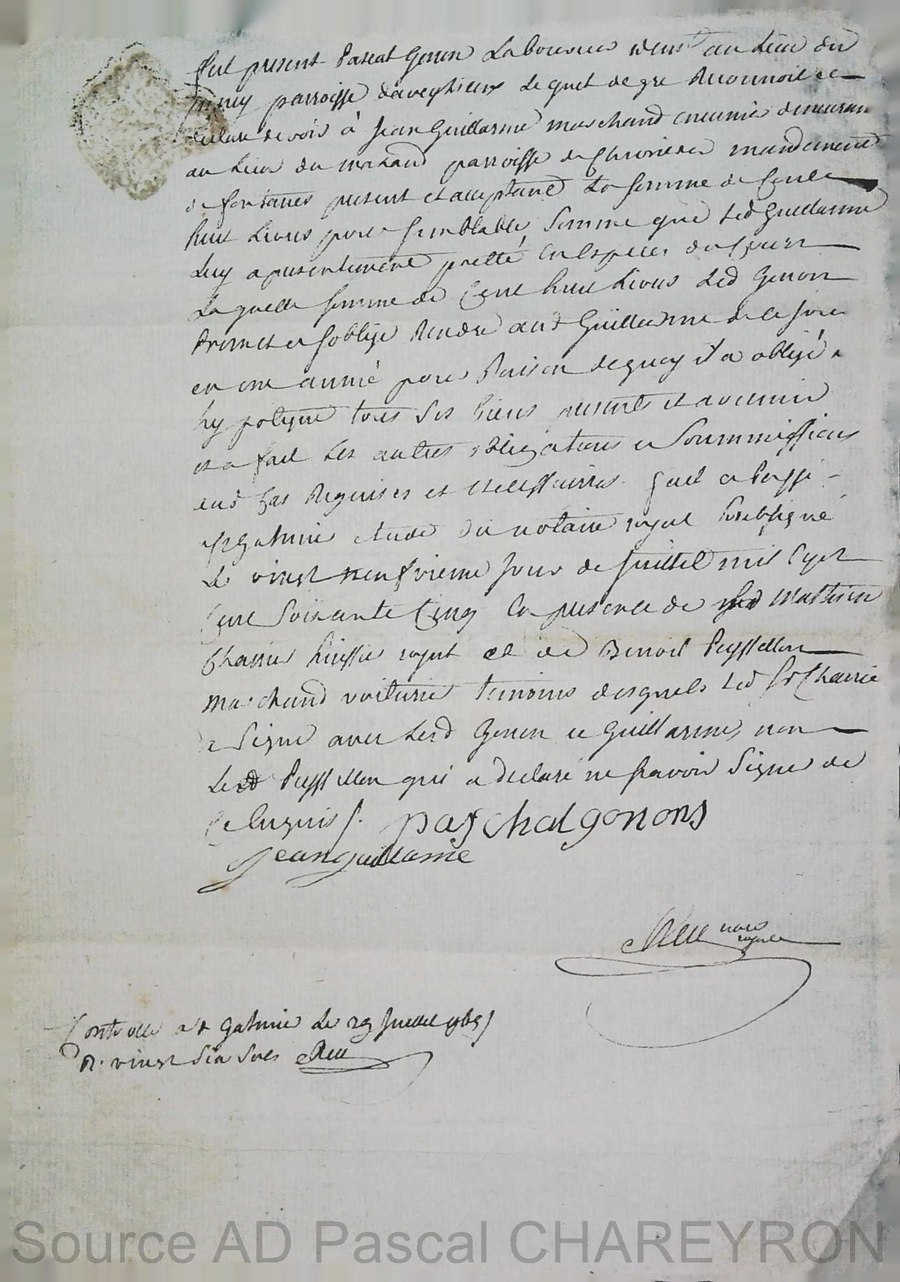 fut present Pascal Gonon Laboureur dem.t au Lieu du
parroisse daveyzieux Lequel de gre Reconnoit et
declare devoir à Jean Guillarme marchand meunié demeurant
au Lieu du parroisse de Chevrieres mandement
de fontanes present et acceptant La somme de Cent
huit Livres pour semblable somme que Led Guillarme
Luy a presentement pretté En Especes du Cours
Laquelle somme de Cent huit Livres Led Gonon
Promet et soblige Rendre aud Guillarme de ce jour
en une année pour Raison de quoy il a obligé
hypotequé tous ses biens presents et avenir
et a fait Les autres obligations et Soummissions
aud Cas Requises et necessaires. fait et passé
a St Galmier étude du notaire royal soubsigné
Le vingt neufvieme jour de juillet mil Sept
Cent Soixante Cinq En presence de Mathieu
huissier royal et de Benoit Peyssellon
marchand voiturié temoins desquels Led Sr
a Signé avec Lesd Gonon et Guillarme, non
Led Peyssellon qui a declaré ne scavoir Signer de
Ce Enquis /. paschal gonons
Jean guillarme
no.re
royal
Controllé a St Galmier Le 29 Juillet 1765
R. vingt Six Sols
Source AD Pascal CHAREYRON